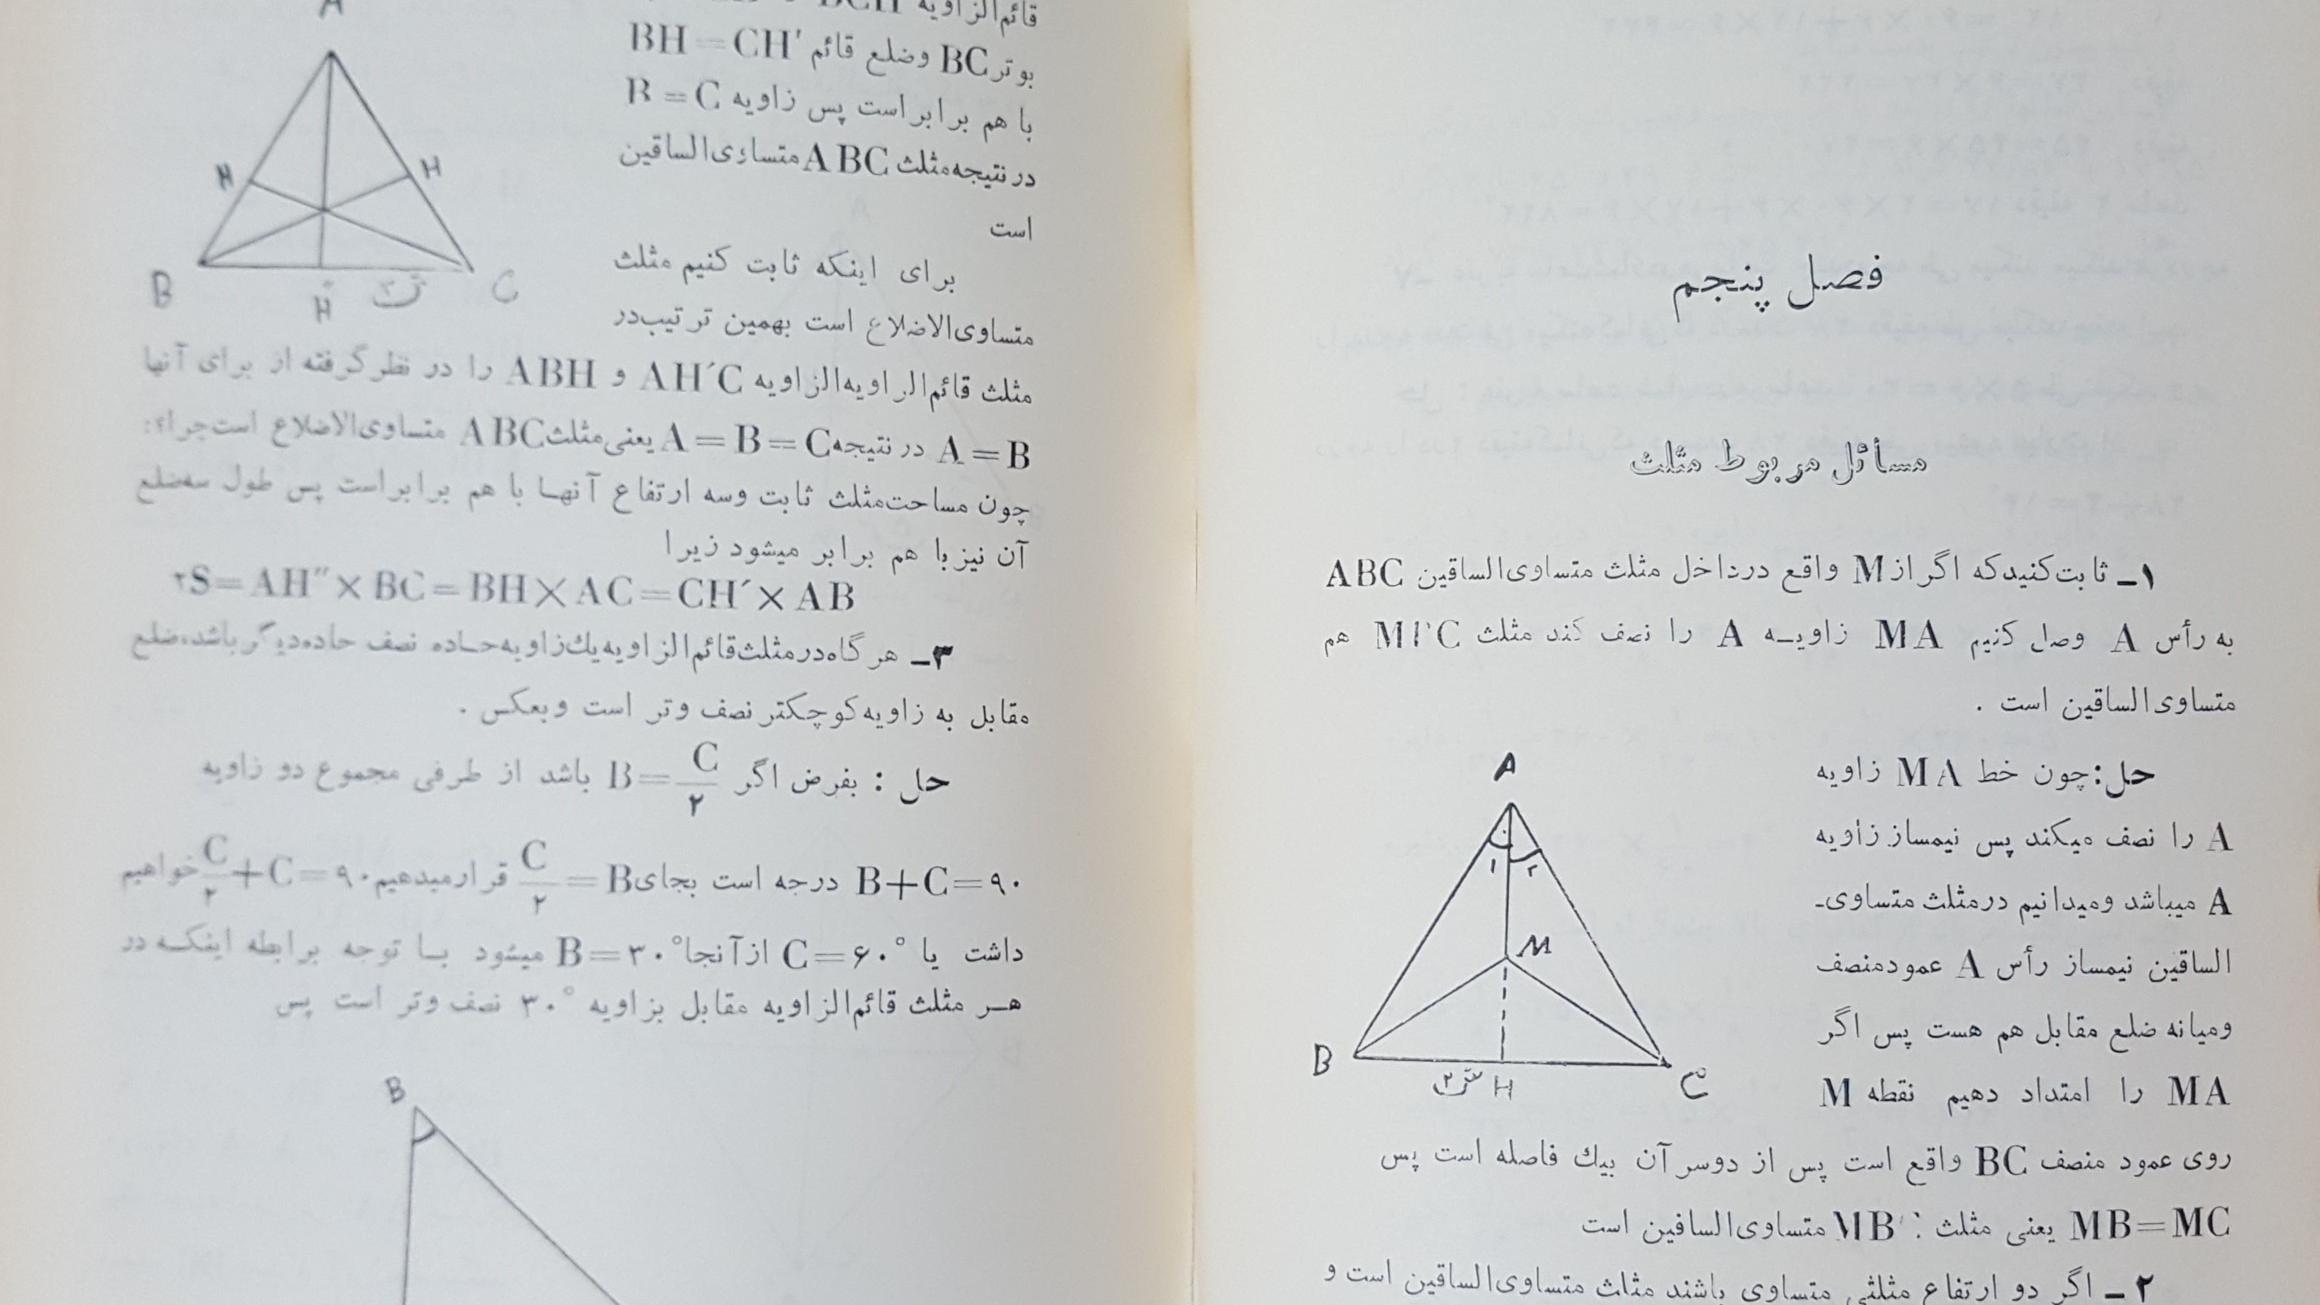 فصل پنجم
مسائل مربوط مثلث
۱ـ ثابت کنید که اگر از M واقع در داخل مثلث متساوی الساقین ABC
به رأس A وصل کنیم MA زاویـه A را نصف کند مثلث هم
متساوی الساقین است .
حل: چون خط MA زاویه
A را نصف میکند پس نیمساز زاویه
A میباشد ومیدانیم درمثلث متساوی‌ـ
الساقین نیمساز رأس A عمودمنصف
ومیانه ضلع مقابل هم هست پس اگر
MA را امتداد دهیم نقطه M
روی عمود منصف BC واقع است پس از دوسر آن بیك فاصله است پس
MB=MC یعنی مثلث متساوی السافین است
۲ـ اگر دو ارتفاع مثلثی متساوی باشند مثلث متساوی الساقین است و
A
۱ ۲
M
B
H
ش۲
C
قائم الزاویه BCH
بوتر BC وضلع قائم BH=CH'
با هم برابر است پس زاویه B=C
در نتیجه مثلث ABC متساوی الساقین
است
برای اینکه ثابت کنیم مثلث
متساوی الاضلاع است بهمین ترتیب در
مثلث قائم الزاویه الزاویه AH'C و ABH را در نظر گرفته از برای آنها
A=B در نتیجه A=B=C یعنی مثلث ABC متساوی الاضلاع است چرا؟:
چون مساحت مثلث ثابت وسه ارتفاع آنهـا با هم برابراست پس طول سه ضلع
آن نیز با هم برابر میشود زیرا
۲S=AH″×BC=BH×AC=CH′×AB
۳ـ هر گاه در مثلث قائم الزاویه یك زاویه حـاده نصف حاده دیگر باشد، ضلع
مقابل به زاویه کوچکتر نصف وتر است وبعکس .
حل : بفرض اگر B=C/۲ باشد از طرفی مجموع دو زاویه
B+C=۹۰ درجه است بجای B=C/۲ قرار میدهیم C/۲+C=۹۰ خواهیم
داشت یا C=۶۰° از آنجا B=۳۰° میشود بـا توجه برابطه اینکـه در
هـر مثلث قائم الزاویه مقابل بزاویه ۳۰° نصف وتر است پس
A
H
H
B
H
C
B